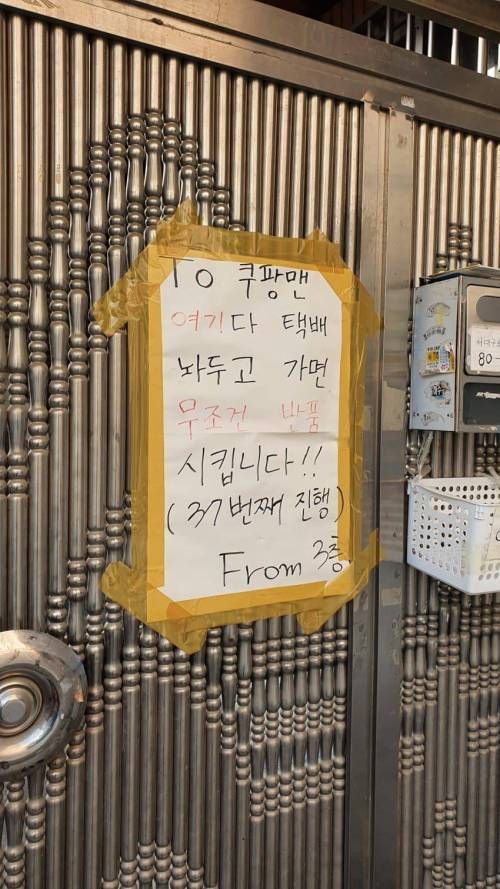 To 쿠팡맨
여기다 택배
놔두고 가면
무조건 반품
시킵니다!!
(37번째 진행)
From 3층
80